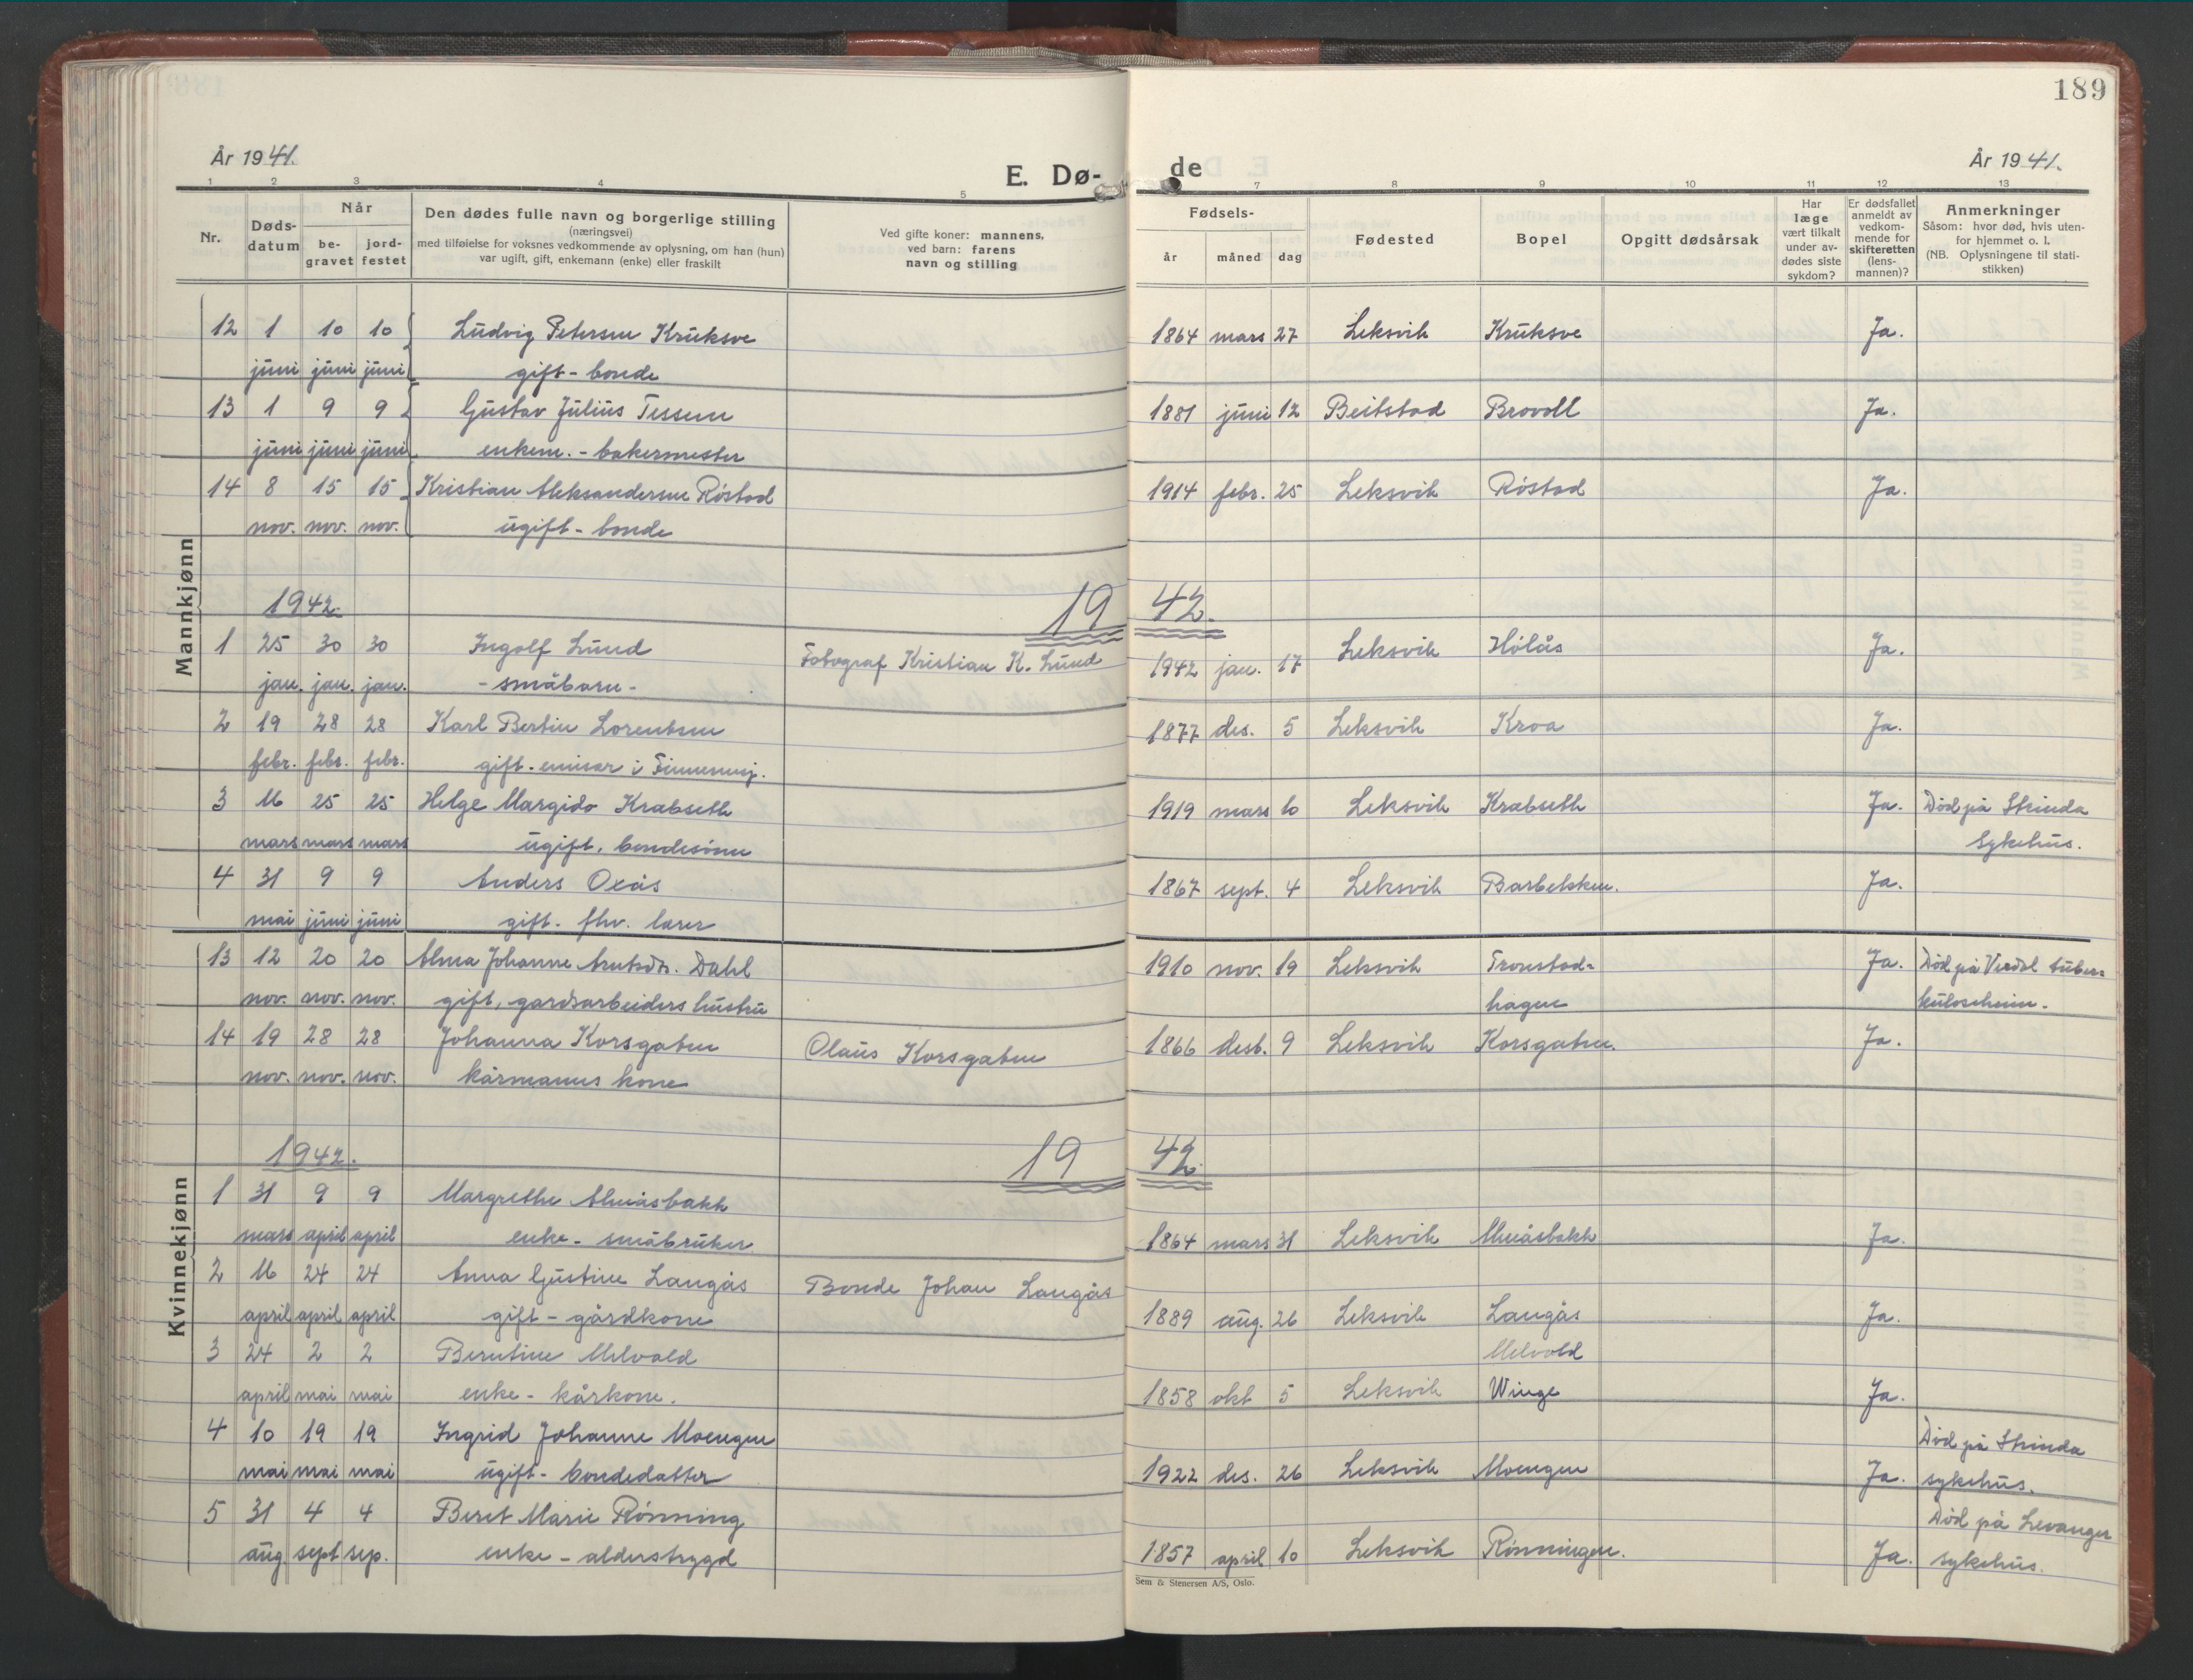 189
År 1941.
E. Dø-
de
År 1941.
1 2 3 4 5 7 8 9 10 11 12 13
Nr.
Døds-
datum
Når
be-
gravet
jord-
festet
Den dødes fulle navn og borgerlige stilling
(næringsvei)
med tilføielse for voksnes vedkommende av oplysning, om han (hun)
var ugift, gift, enkemann (enke) eller fraskilt
Ved gifte koner: mannens,
ved barn: farens
navn og stilling
Fødsels-
år måned dag
Fødested
Bopel
Opgitt dødsårsak
Har
læge
vært tilkalt
under av-
dødes siste
sykdom?
Er dødsfallet
anmeldt av
vedkom-
mende for
skifteretten
(lens-
mannen)?
Anmerkninger
Såsom: hvor død, hvis uten-
for hjemmet o. l.
(NB. Oplysningene til stati-
stikken)
Mannkjønn
12 1 10 10 Ludvig Petersen Kruksve 1864 mars 27 Leksvik Kruksve Ja.
juni juni juni gift - bonde
13 1 9 9 Gustav Julius Tessem 1881 juni 12 Beitstad Brovoll Ja.
juni juni juni enkem. - bakermester
14 8 15 15 Kristian Aleksandersen Röstad 1914 febr. 25 Leksvik Röstad Ja.
nov. nov. nov. ugift - bonde
1942. 19 42.
1 25 30 30 Ingolf Lund Fotograf Kristian K. Lund 1942 jan. 17 Leksvik Hölås Ja.
jan. jan. jan. - småbarn -
2 19 28 28 Karl Bertin Lorentsen 1877 des. 5 Leksvik Kroa Ja.
febr. febr. febr. gift - emisær i Finnemisj.
3 16 25 25 Helge Margido Krabseth 1919 mars 10 Leksvik Krabseth Ja. Död på Strinda
mars mars mars ugift, bondesönn sykehus.
4 31 9 9 Anders Oxås 1867 sept. 4 Leksvik Barbekken. Ja.
mai juni juni gift - fhv. lærer
Kvinnekjønn
13 12 20 20 Alma Johanne Arntsdtr. Dahl 1910 nov. 19 Leksvik Tronstad- Ja. Död på Verdal tuber-
nov. nov. nov. gift, gardsarbeiders hustru hagen kuloseheim.
14 19 28 28 Johanna Korsgaten Olaus Korsgaten 1866 desb. 9 Leksvik Korsgaten. Ja.
nov. nov. nov. kårmanns kone
1942. 19 42.
1 31 9 9 Margrethe Almåsbakk
mars april april enke - småbruker 1864 mars 31 Leksvik Almåsbakk Ja.
2 16 24 24 Anna Gustine Langås Bonde Johan Langås
april april april gift - gårdkone 1889 aug. 26 Leksvik Langås Ja.
3 24 2 2 Berntine Melvold Melvold
april mai mai enke - kårkone. 1858 okt 5 Leksvik Winge Ja.
4 10 19 19 Ingrid Johanne Moengen Död på Strinda
mai mai mai ugift - bondedatter 1922 des. 26 Leksvik Moengen Ja. sykehus.
5 31 4 4 Beret Marie Rönning Död på Levanger
aug sept sep. enke - alderstrygd 1857 april 10 Leksvik Rönningen. Ja. sykehus.
Sem & Stenersen A/S, Oslo.